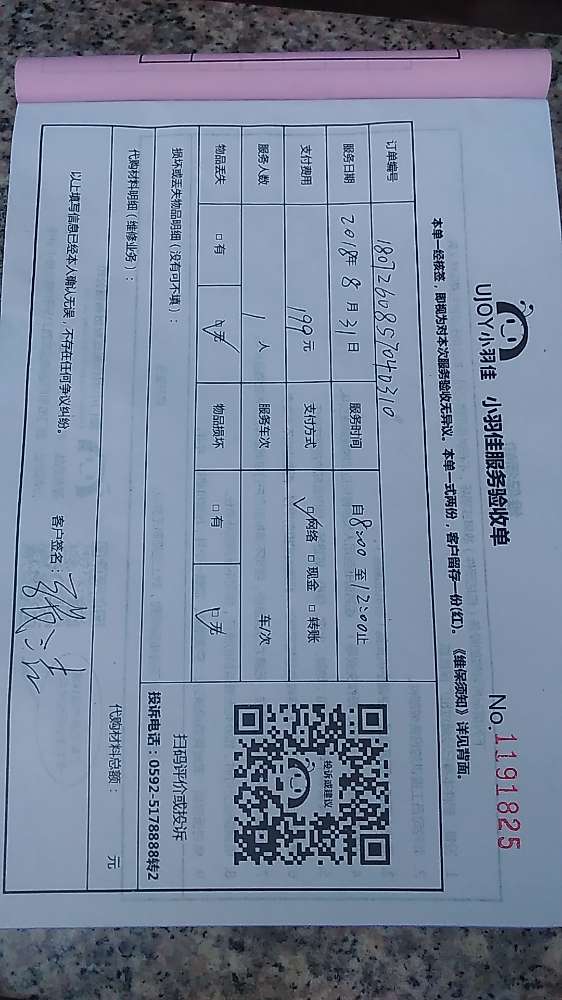 UJOY小羽佳 小羽佳服务验收单
No. 1191825
本单一经核签，即视为对本次服务验收无异议。本单一式两份，客户留存一份(红)。《维保须知》详见背面。
订单编号 18072608570403​10
服务日期 2018年 8 月 31 日 服务时间 自 8:00 至 12:00止
支付费用 199 元 支付方式 ☑网络 □现金 □转账
服务人数 1 人 服务车次 车/次
物品丢失 □有 ☑无 物品损坏 □有 ☑无
投诉或建议
扫码评价或投诉
投诉电话：0592-5178888转2
损坏或丢失物品明细（没有可不填）：
代购材料明细（维修业务）： 代购材料总额： 元
以上填写信息已经本人确认无误，不存在任何争议纠纷。 客户签名：